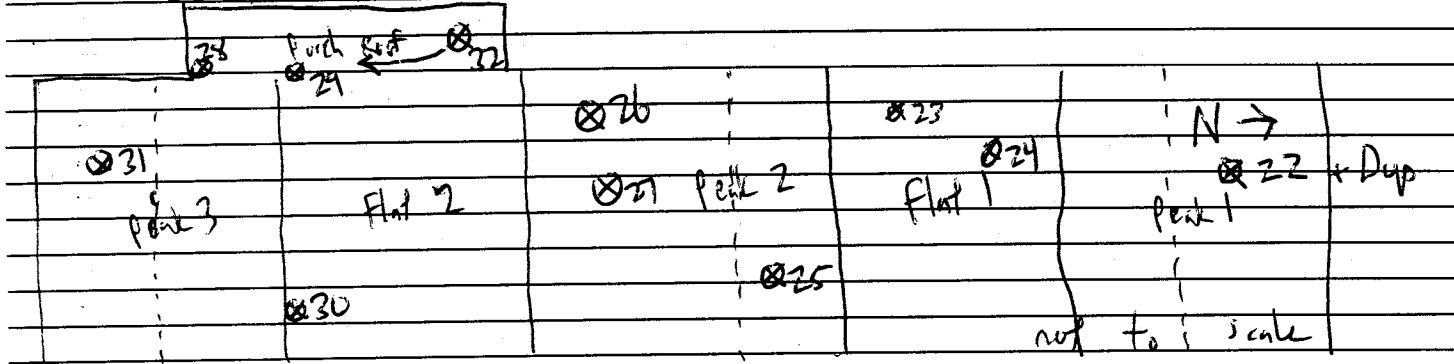 28 Porch Roof 32
29
26 23 N →
31 24 22 + Dup
27 Peak 2
Peak 3 Flat 2 Flat 1 Peak 1
25
30
not to scale